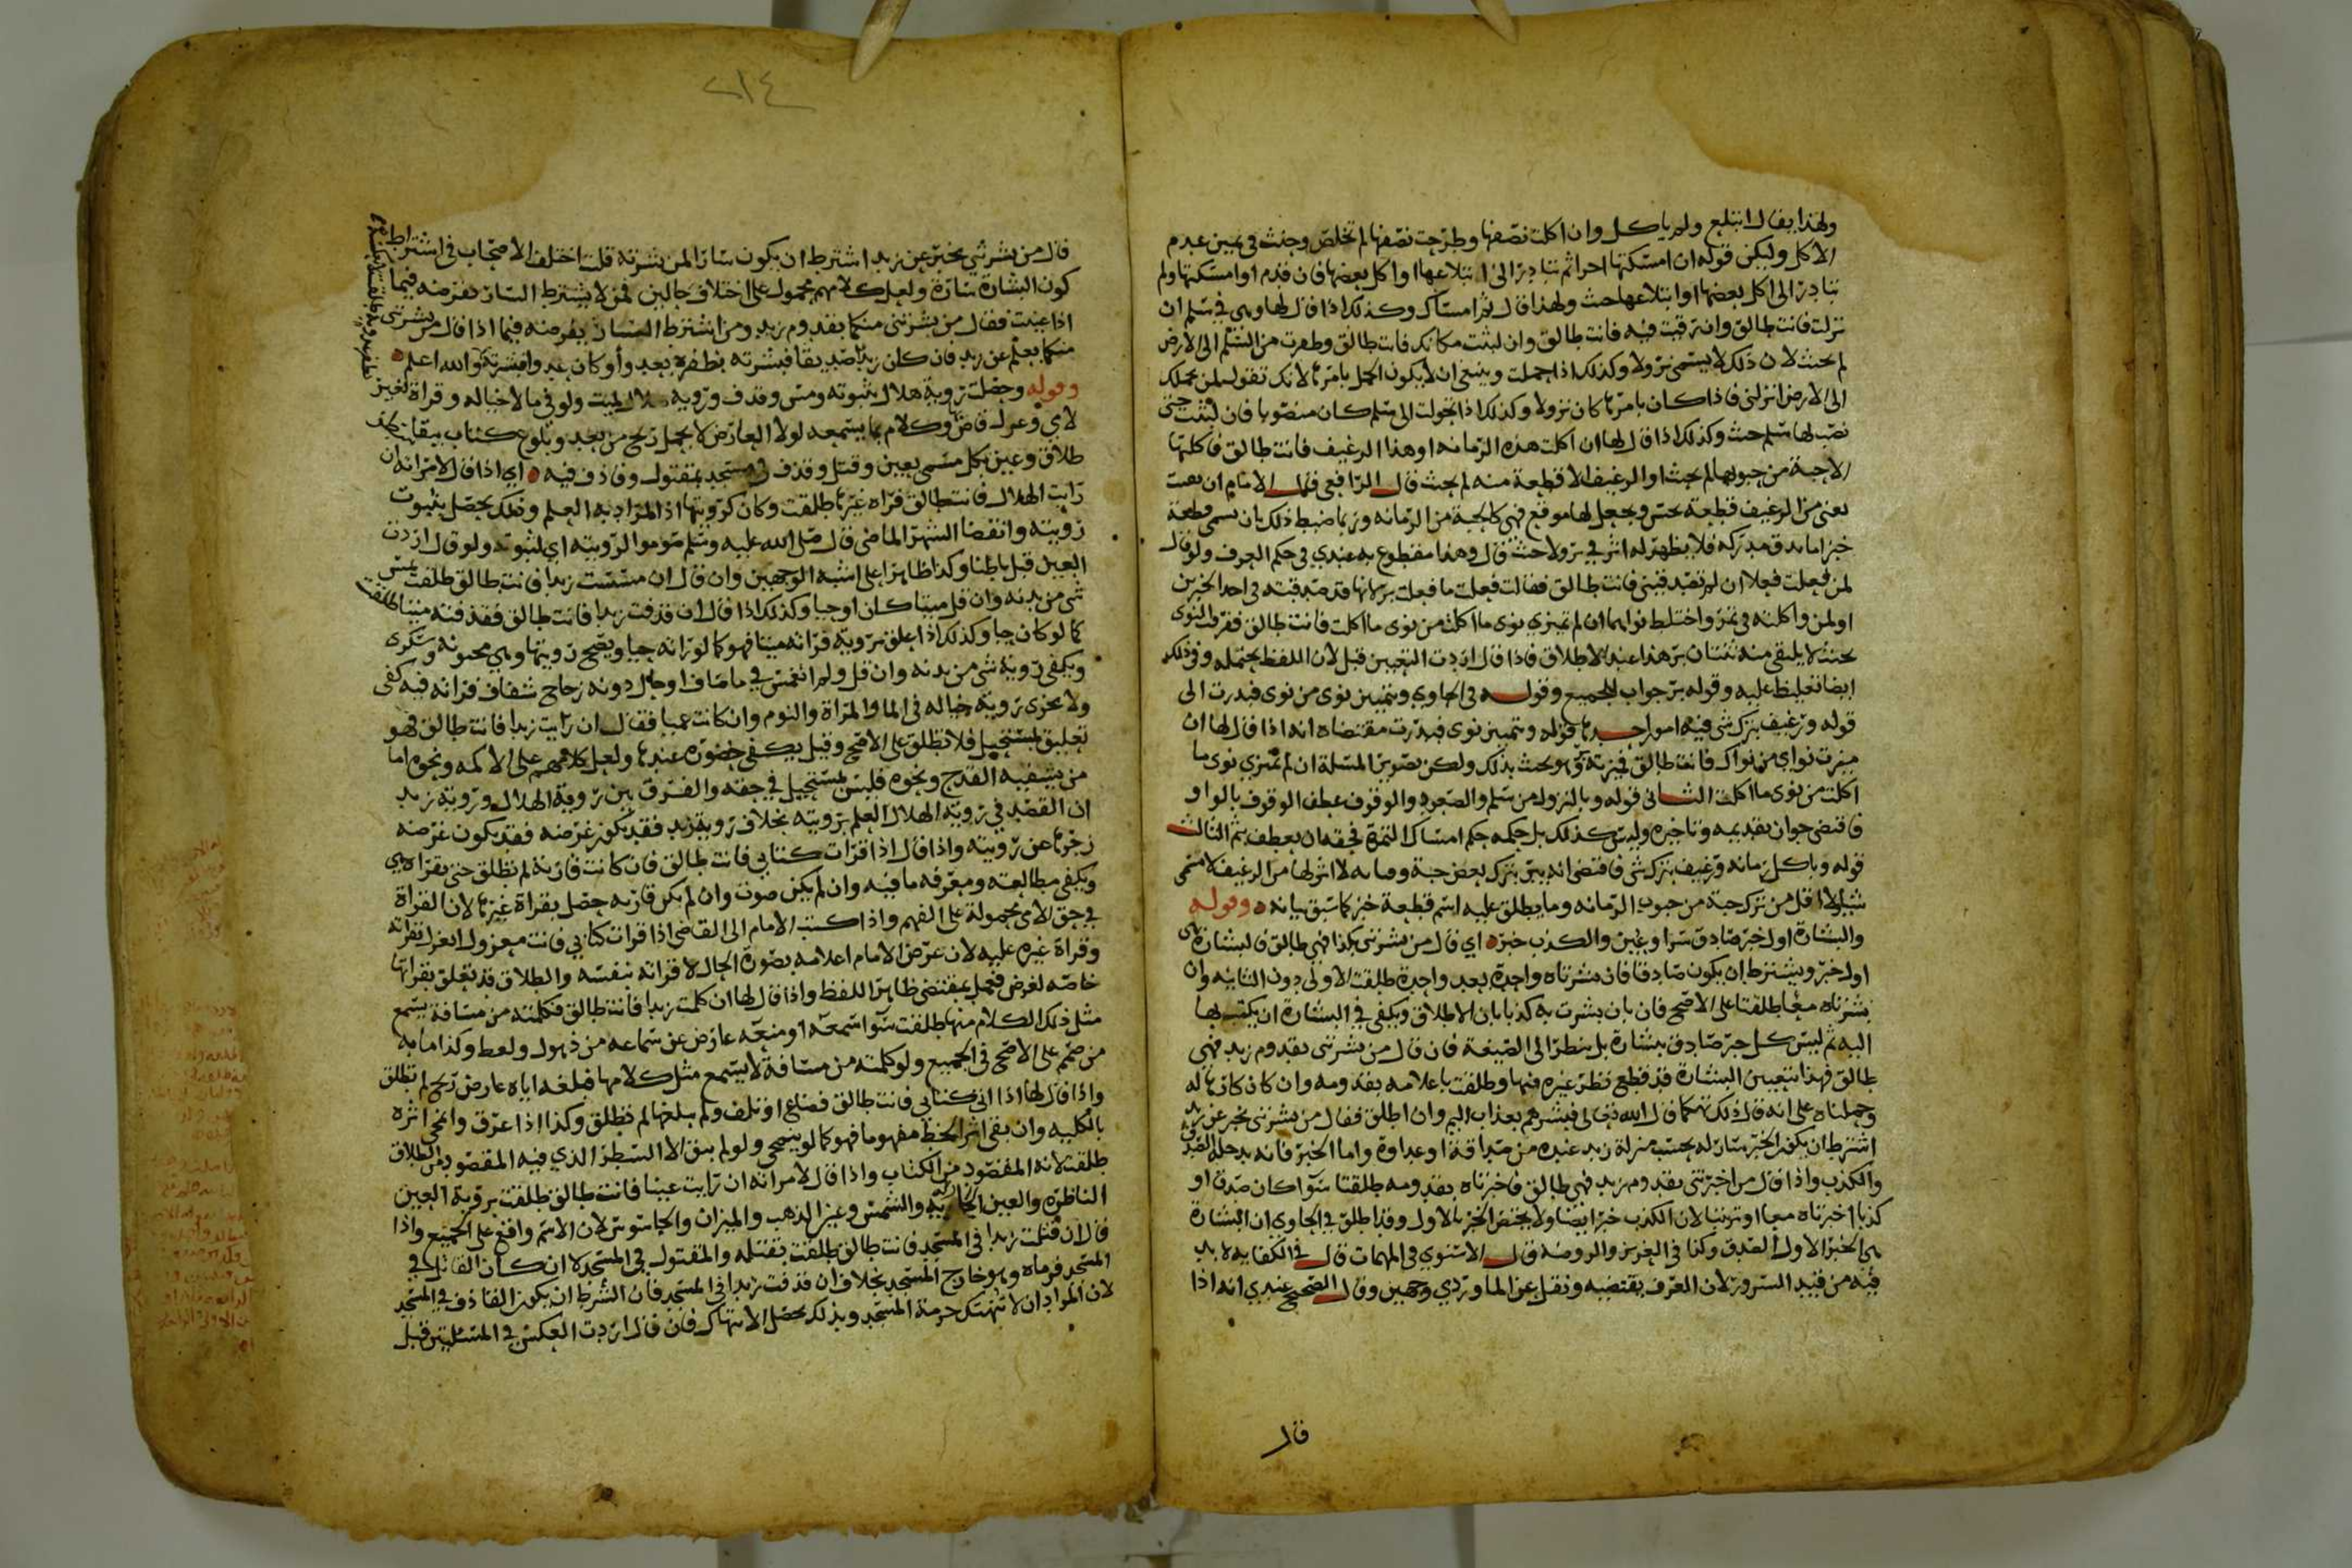 ولهذا يقال ابتلع ولم ياكل وان اكلت نصفها وطرحت نصفها لم تخلص وحنث في يمين عدم
الاكل وليكن قوله ان امسكتها اخرا ثم تبادر الى ابتلاعها او اكل بعضها فان قدم او امسكتها ولم
تبادر الى اكل بعضها او ابتلاعها حنث ولهذا قال ثم امساك وكذلك اذا قال لها وهي في سلم ان
نزلت فانت طالق وان رقيت فيه فانت طالق وان لبثت مكانك فانت طالق وطفرت من السلم الى الارض
لم يحنث لان ذلك لا يسمى نزولا وكذلك اذا حملت وينبغي ان لا يكون الحمل بامرها لانك تقول لمن يحملك
الى الارض انزلني فاذا كان بامرها كان نزولا وكذلك اذا تحولت الى سلم كان منصوبا فان لبثت حتى
نصب لها سلم حنث وكذلك اذا قال لها ان اكلت هذه الرمانه او هذا الرغيف فانت طالق فاكلتها
الا حبة من حبوبها لم يحنث او الرغيف الا قطعة منه لم يحنث قال الرافعي قال الامام ان بقيت
يعني من الرغيف قطعة تحس ويجعل لها موقع فهي كالحبة من الرمانه وربما ضبط ذلك بان يسمى قطعة
خبز اما ما يدق مدركه فلا يظهر له اثر في بر ولا حنث قال وهذا مقطوع به عندي في حكم العرف ولو قال
لمن فعلت فعلا ان لم تصدقيني فانت طالق فقالت فعلت ما فعلت بر لانها قد صدقته في احد الخبرين
او لمن واكلته في تمر واختلط نواهما ان لم تميزي نوى ما اكلت من نوى ما اكلت فانت طالق ففرق النوى
بحيث لا يلتقي منه ثنتان بر هذا عند الاطلاق فاذا قال اردت التعيين قبل لان اللفظ يحتمله وفي ذلك
ايضا تغليظ عليه وقوله بر جواب للجميع وقوله في الحاوي وتمييز نوى من نوى فبدرت الى
قوله ورغيف بترك شي فيه امور احدها قوله وتمييز نوى فبدرت مقتضاه انه اذا قال لها ان
ميزت نواي من نواك فانت طالق فميزته وهو يحنث بذلك ولكن تصوير المسلة ان لم تميزي نوى ما
اكلت من نوى ما اكلت الثاني قوله وبالنزول من سلم والصعود والوقوف عطف الوقوف بالواو
فاقتضى جواز تقديمه وتاخيره وليس كذلك بل حكمه حكم امساك التمرة فحقه ان يعطف بثم الثالث
قوله وباكل رمانه ورغيف بترك شي فاقتضى انه يبر بترك بعض حبة وما به لا اثر لها من الرغيف لا تسمى
شيا ولا اقل من ترك حبة من حبوب الرمانه وما يطلق عليه اسم قطعة خبز كما سبق بيانه ه وقوله
والبشارة اول خبر صادق سرا وغيبن والكذب خبره اي قال من بشرتني بكذا فهي طالق فالبشارة هي
اول خبر ويشترط ان يكون صادقا فان بشرتاه واحدة بعد واحدة طلقت الاولى دون الثانيه وان
بشرتاه معا طلقتا على الاصح فان بان بشرت به كذبا بان الاطلاق ويكفي في البشارة ان يكتب بها
اليه ثم ليس كل خبر صادق بشارة بل ينظر الى الصيغة فان قال من بشرتني بقدوم زيد فهي
طالق فهذا تعيين البشارة قد قطع نظر غيره فيها وطلقت باعلامه بقدومه وان كان كارها له
وحملناه على انه قال ذلك تهكما قال الله تعالى فبشرهم بعذاب اليم وان اطلق فقال من بشرتني بخبر عن زيد
اشترط ان يكون الخبر سارا له بحسب منزلة زيد عنده من صداقة او عداوة واما الخبر فانه يدخله الصدق
والكذب واذا قال من اخبرتني بقدوم زيد فهي طالق فاخبرتاه بقدومه طلقتا سوا كان صدقا او
كذبا اخبرتاه معا او ترتيبا لان الكذب خبر ايضا ولا يختص الخبر بالاول وقد اطلق في الحاوي ان البشارة
هي الخبر الاول الصدق وكذا في العزيز والروضه قال الاسنوي في المهمات قال في الكفايه لا بد
فيه من قيد السرور لان العرف يقتضيه ونقل عن الماوردي وجهين وقال الصحيح عندي انه اذا
قال
٢١٤
قال من بشرتني بخبر عن زيد اشترط ان يكون سارا لمن بشرته قلت اختلف الاصحاب في اشتراط
كون البشارة سارة ولعل كلامهم محمول على اختلاف حالين فمن لا يشترط السار يفرضه فيما
اذا عينت فقال من بشرتني منكما بقدوم زيد ومن اشترط السار يفرضه فيما اذا قال من بشرتني
منكما بعلم عن زيد فان كان زيد صديقا فبشرته بظفره بعدو أو كان عدوا فبشرته والله اعلم ه
وقوله وحصلت روية هلال بثبوته ومس وقذف وروية ميت ولو في ما لا خياله وقراة لغيز
لامي وعزل قاض وكلام بما يسمعه لولا العارض لا بحمل ريح من بعد وبلوغ كتاب ببقا
طلاق وعين بكل مسمى بعين وقتل وقذف في مسجد بمقتول وقاذف فيه ه اي اذا قال لامراته ان
رايت الهلال فانت طالق فراه غيرها طلقت وكان كرويتها اذ المراد به العلم وذلك يحصل بثبوت
رويته وانقضا الشهر الماضي قال صلى الله عليه وسلم صوموا لرويته اي لثبوته ولو قال اردت
العين قبل باطنا وكذا ظاهرا على اشبه الوجهين وان قال ان مسست زيدا فانت طالق طلقت بمس
شي من بدنه وان قل ميتا كان او حيا وكذلك اذا قال ان قذفت زيدا فانت طالق فقذفته ميتا طلقت
كما لو كان حيا وكذلك اذا علق بروية فراته ميتا فهو كما لو راته حيا ويصح رويتها وهي مجنونة وسكرى
ويكفي روية شي من بدنه وان قل ولو انغمس في ما صاف او حال دونه زجاج شفاف فراته فيه كفى
ولا تجزي روية خياله في الما والمراة والنوم وان كانت عميا فقال ان رايت زيدا فانت طالق فهو
تعليق بمستحيل فلا تطلق على الاصح وقيل يكفي حضوره عندها ولعل كلامهم على الاكمه ونحوه اما
من يشفيه القدح ونحوه فليس بمستحيل في حقه والفرق بين روية الهلال وروية زيد
ان القصد في روية الهلال العلم برويته بخلاف روية زيد فقد يكون غرضه فقد يكون غرضه
زجرها عن رويته واذا قال اذا قرات كتابي فانت طالق فان كانت قارية لم تطلق حتى تقراه هي
ويكفي مطالعته ومعرفه ما فيه وان لم يكن صوت وان لم يكن قاريه حصل بقراة غيرها لان القراة
في حق الامي محمولة على الفهم واذا كتب الامام الى القاضي اذا قرات كتابي فانت معزول انعزل بقراته
وقراة غيره عليه لان غرض الامام اعلامه بصورة الحال لا قراته بنفسه والطلاق قد تعلق بقراتها
خاصه لغرض فحمل بمقتضى ظاهر اللفظ واذا قال لها ان كلمت زيدا فانت طالق فكلمته من مسافة يسمع
مثل ذلك الكلام منها طلقت سوا سمعه او منعه عارض عن سماعه من ذهول ولغط وكذا ما به
من صمم على الاصح في الجميع ولو كلمته من مسافة لا يسمع مثل كلامها فبلغه اياه عارض ريح لم تطلق
واذا قال لها اذا اتى كتابي فانت طالق فضاع او تلف ولم يبلغها لم تطلق وكذا اذا غرق وانمحى اثره
بالكليه وان بقي اثر الخط مفهوما فهو كما لو ينمحي ولو لم يبق الا السطر الذي فيه المقصود من الطلاق
طلقت لانه المقصود من الكتاب واذا قال لامراته ان رايت عينا فانت طالق طلقت بروية العين
الناظره والعين الجارية والشمس وعين الذهب والميزان والجاسوس لان الاسم واقع على الجميع واذا
قال ان قتلت زيدا في المسجد فانت طالق طلقت بقتله والمقتول في المسجد لا ان كان القاتل في
المسجد فرماه وهو خارج المسجد بخلاف ان قذفت زيدا في المسجد فان الشرط ان يكون القاذف في المسجد
لان المراد ان لا تنتهك حرمة المسجد وبذلك يحصل الانتهاك فان قال اردت العكس في المسئلتين قبل